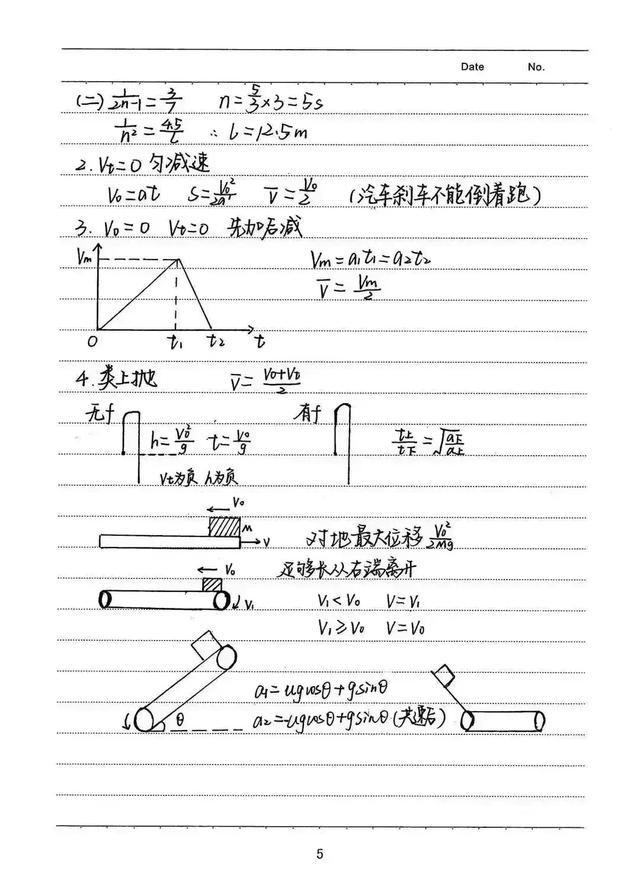 Date No.
(二) 1/(2n-1) = 3/7 n = 5/3 × 3 = 5s
1/n² = 4.5/L ∴ L = 12.5m
2. Vt=0 匀减速
V₀=at S=V₀²/2a V̅=V₀/2 (汽车刹车不能倒着跑)
3. V₀=0 Vt=0 先加后减
Vm
Vm=a₁t₁=a₂t₂
V̅=Vm/2
0 t₁ t₂ t
4. 类上抛 V̅=(V₀+Vt)/2
无f 有f
h=V₀²/g t=V₀/g t上/t下=√(a下/a上)
Vt为负 h为负
V₀
M
V 对地最大位移 V₀²/2Mg
足够长从右端离开
V₀
V₁ V₁<V₀ V=V₁
V₁≥V₀ V=V₀
a₁=ugcosθ+gsinθ
θ a₂=-ugcosθ+gsinθ(共速后)
5